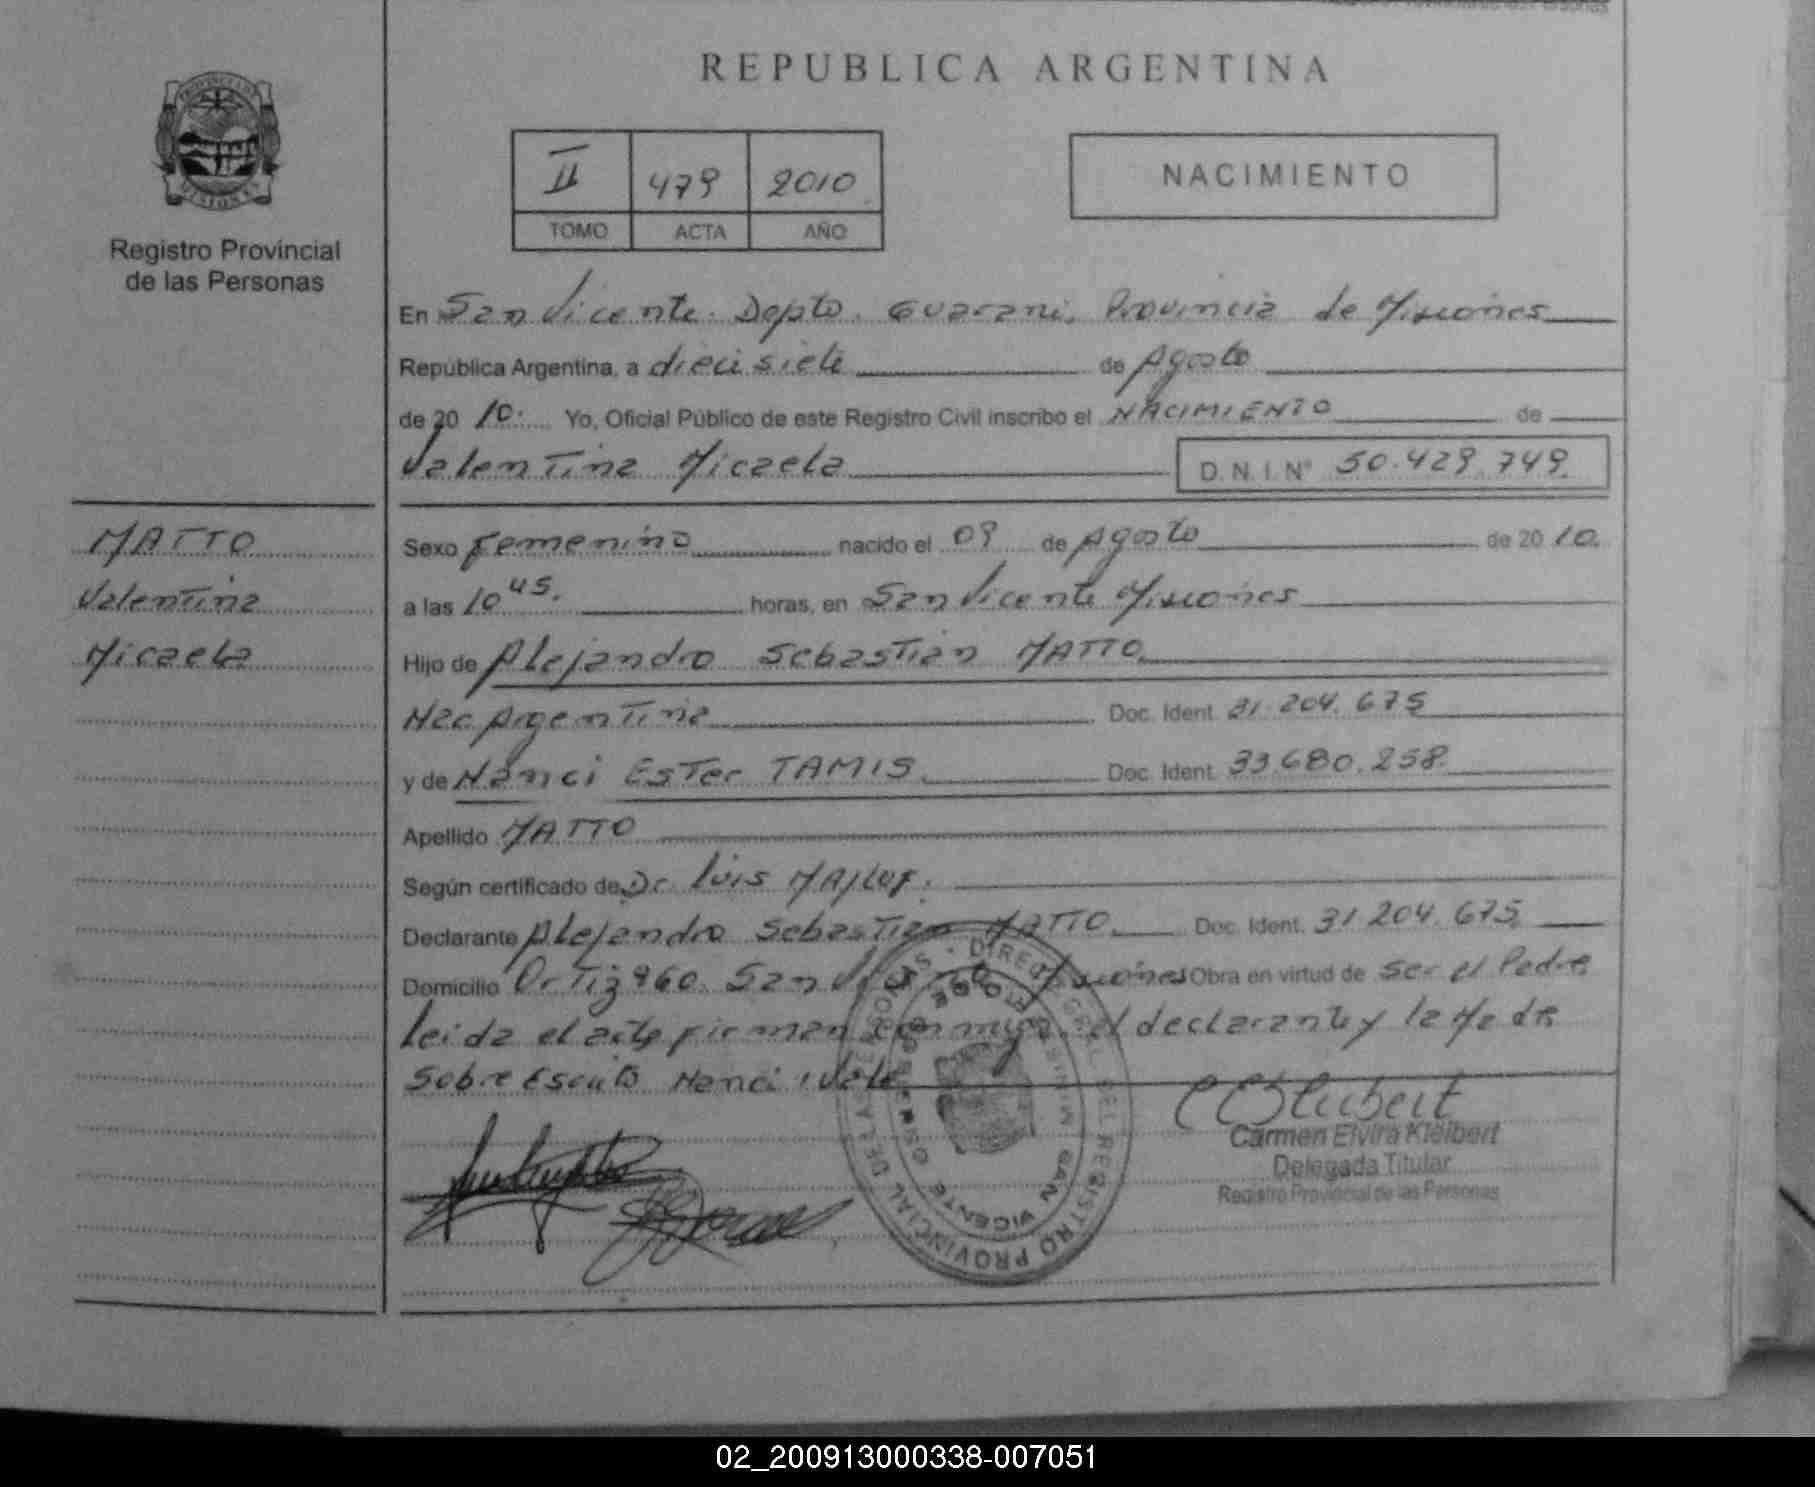 REPUBLICA ARGENTINA
PROVINCIA DE
MISIONES
Registro Provincial
de las Personas
II 479 2010
TOMO ACTA AÑO
NACIMIENTO
En San Vicente. Depto. Guarani. Provincia de Misiones
República Argentina, a dieci siete de Agosto
de 20 10. Yo, Oficial Público de este Registro Civil inscribo el NACIMIENTO de
Valentina Micaela D.N.I. Nº 50.429.749.
MATTO
Valentina
Micaela
Sexo Femenino nacido el 09 de Agosto de 20 10.
a las 10 45. horas, en San Vicente Misiones
Hijo de Alejandro Sebastian MATTO
Nac Argentina Doc. Ident. 31.204.675
y de Nanci Ester TAMIS. Doc. Ident. 33.680.258.
Apellido MATTO
Según certificado de Dr. Luis
Declarante Alejandro Sebastian MATTO. Doc. Ident. 31 204.675.
Domicilio Ortiz 960. San Misiones Obra en virtud de ser el Padre
leida el acta firman el declarante y la Madre
Sobre Escrito Nanci : Vale
DIREC. GRAL. DEL REGISTRO PROVINCIAL DE LAS PERSONAS
SAN VICENTE
Carmen Elvira Kleibert
Delegada Titular
Registro Provincial de las Personas
02_200913000338-007051